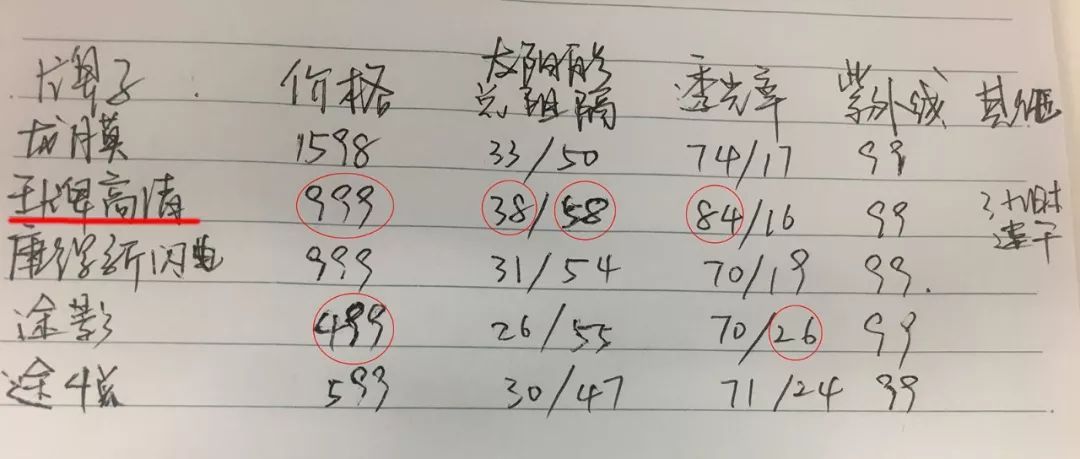 牌子 价格 太阳能总阻隔 透光率 紫外线
龙膜 1598 33/50 74/17 99
王牌高清 999 38/58 84/16 99 3小时速干
康得新闪电 999 31/54 70/19 99.
途影 499 26/55 70/26 99
途 599 30/47 71/24 99